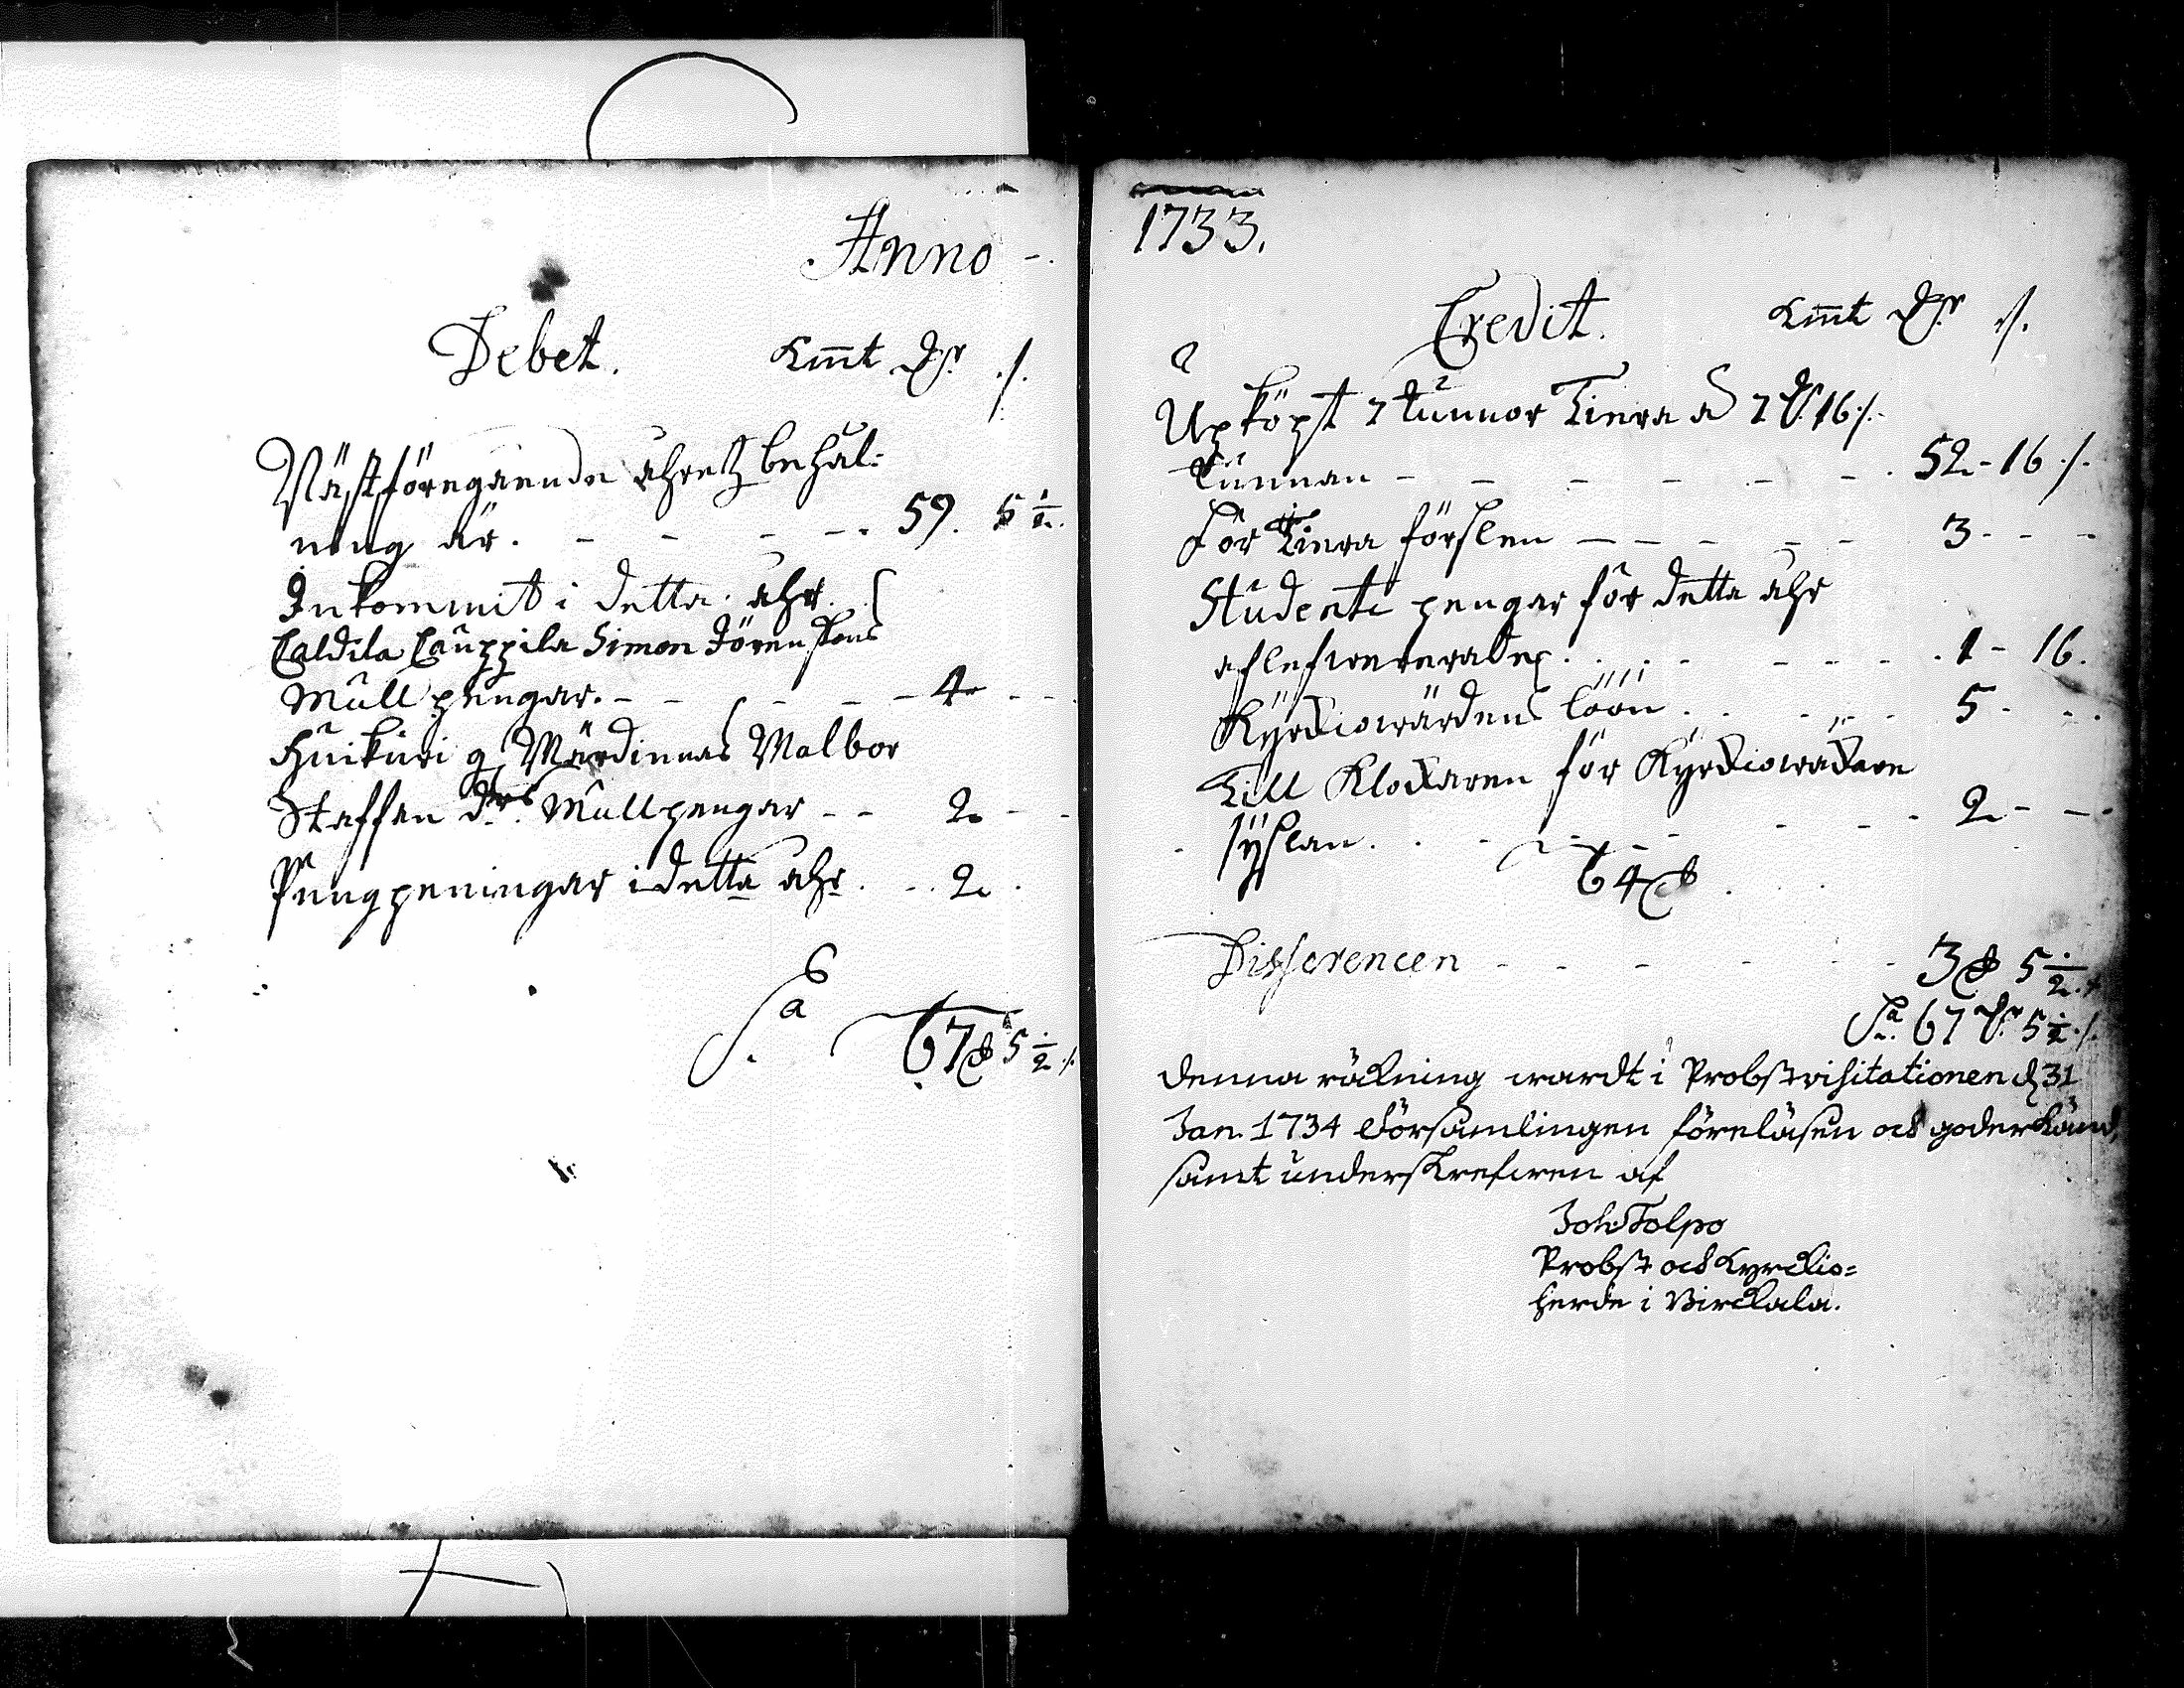 Anno -.
Debet. Kmt D:r ./.
Nästföregåendes åhretz behål:
ning är. - - - - -. 59. 5 1/2.
Inkommit i detta åhr.
Caldila Cauppila Simon Jörenssons
Mull pengar. - - - - - 4 - -
Huikuri g Mårdinnas Malbor
Staffan d:rs Mullpengar - - 2. - -
Pung peningar i detta åhr. - . 2.
S:a 67 D 5 1/2 ./.
1733.
Credit. Kmt D:r ./.
Upköpt 7 tunnor Tiera a 7 D. 16 ./.
tunnan - - - - - - . 52 - 16 ./.
För Tiera förslen - - - - - 3 - - -
Studente pengar för detta åhr
aflefwererades . . . - - - - . 1 - 16.
Kyrckiowärdens löön . . - . - 5 - - .
Till Klockaren för Kyrckiowäckare
syslan. . - - - - - . 2 - - .
64 D
Differencen - - - - - - 3 D 5 1/2 ./.
S:a 67 D. 5 1/2 ./.
denna räkning wardt i Probstvisitationen d. 31
Jan. 1734 Församlingen föreläsen och goderkänd,
samt underskrefwen af
Joh: Tolpo
Probst och Kyrckio=
herde i Birckala.